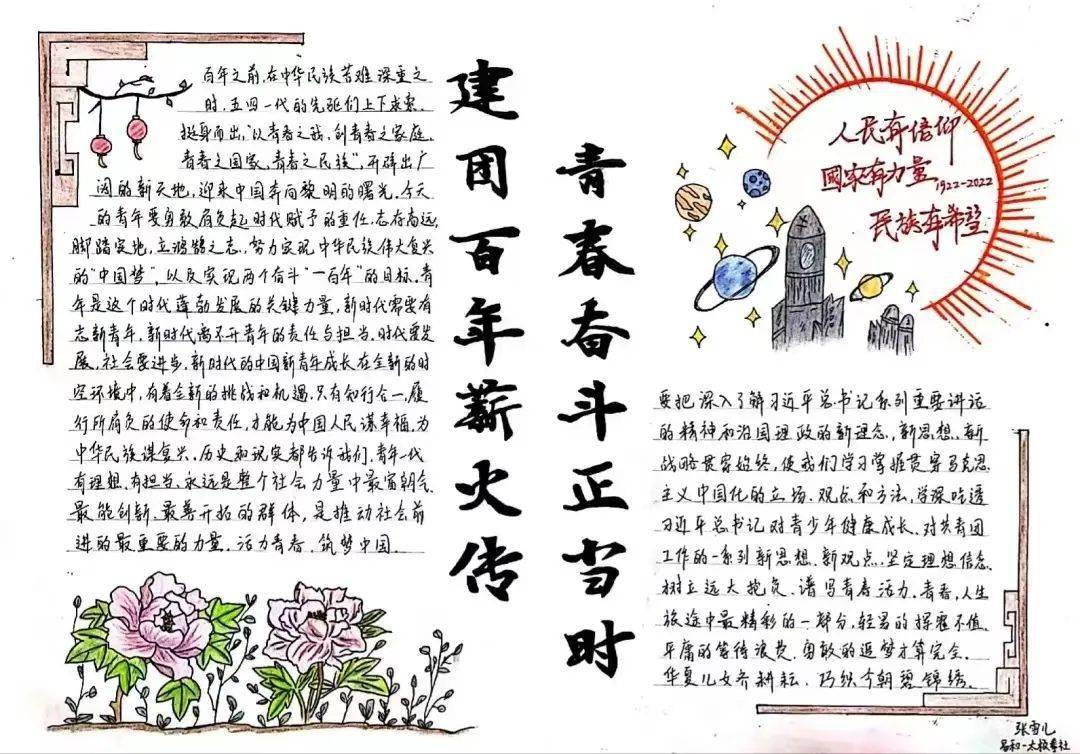 百年之前,在中华民族苦难深重之
时,五四一代的先驱们上下求索,
挺身而出,"以青春之我,创青春之家庭,
青春之国家,青春之民族",开辟出广
阔的新天地,迎来中国奔向黎明的曙光。今天
的青年要勇敢肩负起时代赋予的重任,志存高远,
脚踏实地,立鸿鹄之志,努力实现中华民族伟大复兴
的"中国梦",以及实现两个奋斗"一百年"的目标。青
年是这个时代蓬勃发展的关键力量,新时代需要有
志新青年,新时代离不开青年的责任与担当。时代要发
展,社会要进步,新时代的中国新青年成长在全新的时
空环境中,有着全新的挑战和机遇。只有知行合一,履
行所肩负的使命和责任,才能为中国人民谋幸福,为
中华民族谋复兴。历史和现实都告诉我们,青年一代
有理想、有担当,永远是整个社会力量中最富朝气、
最能创新、最善开拓的群体,是推动社会前
进的最重要的力量。活力青春、筑梦中国。
建团百年薪火传
青春奋斗正当时
人民有信仰
国家有力量
1922-2022
民族有希望
要把深入了解习近平总书记系列重要讲话
的精神和治国理政的新理念,新思想、新
战略贯穿始终,使我们学习掌握贯穿马克思
主义中国化的立场、观点和方法,学深吃透
习近平总书记对青少年健康成长、对共青团
工作的一系列新思想、新观点,坚定理想信念,
树立远大抱负、谱写青春活力。青春,人生
旅途中最精彩的一部分,轻易的探霍不值,
平庸的等待浪费,勇敢的追梦才算完全。
华夏儿女齐耕耘、巧织今朝碧锦绣。
张雪儿